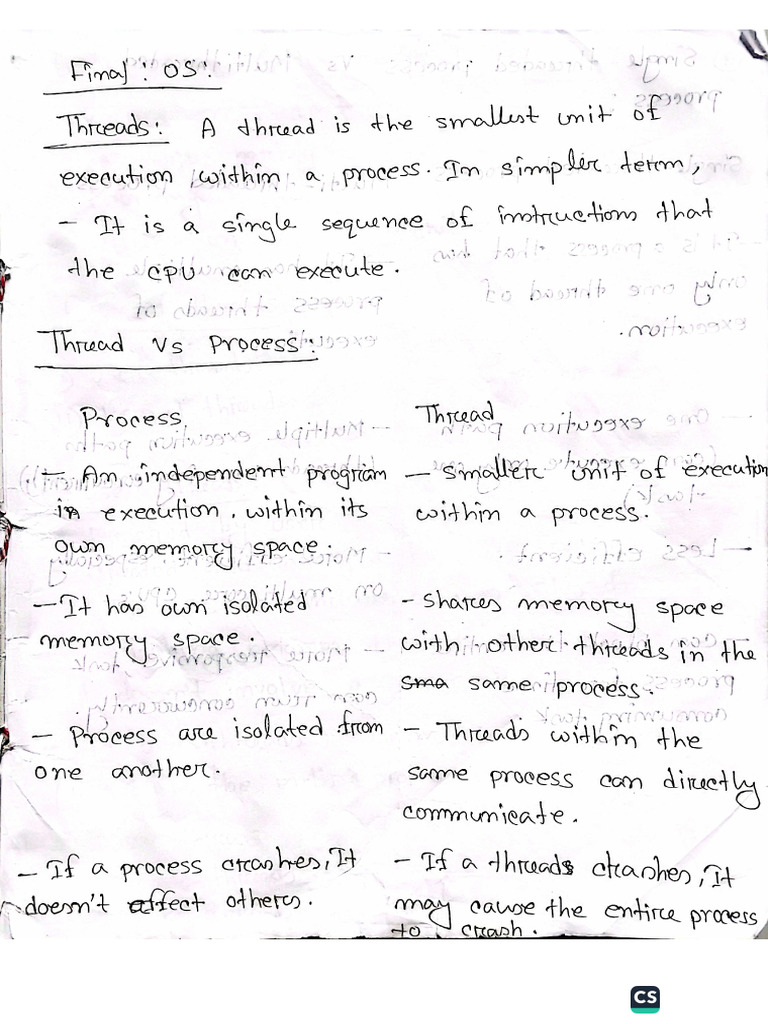 Final : OS :
Threads: A thread is the smallest unit of
execution within a process. In simpler term,
- It is a single sequence of instructions that
the CPU can execute.
Thread Vs Process:
Process
- An independent program
in execution. within its
own memory space.
- It has own isolated
memory space.
- Process are isolated from
one another.
- If a process crashes, It
doesn't affect others.
Thread
- Smaller unit of execution
within a process.
- Shares memory space
with other threads in the
sma same process.
- Threads within the
same process can directly
communicate.
- If a threads crashes, It
may cause the entire process
to crash.
CS